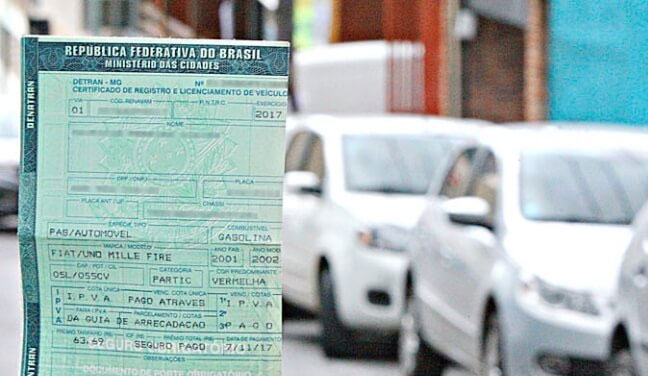 REPÚBLICA FEDERATIVA DO BRASIL
MINISTÉRIO DAS CIDADES
DETRAN - MG Nº
CERTIFICADO DE REGISTRO E LICENCIAMENTO DE VEÍCULO
VIA CÓD. RENAVAM R.N.T.R.C. EXERCÍCIO
01 2017
NOME
CPF / CNPJ PLACA
PLACA ANT / UF CHASSI
ESPÉCIE TIPO COMBUSTÍVEL
PAS/AUTOMOVEL GASOLINA
MARCA / MODELO ANO FAB. ANO MOD
FIAT/UNO MILLE FIRE 2001 2002
CAP / POT / CIL CATEGORIA COR PREDOMINANTE
05L/055CV PARTIC VERMELHA
COTA ÚNICA VENC. COTA ÚNICA VENC. / COTAS
I.P.V.A. PAGO ATRAVES 1ª I.P.V.A
IPVA PARCELAMENTO / COTAS
DA GUIA DE ARRECADACAO 3ª P A G O
PRÊMIO TARIFÁRIO (R$) PRÊMIO TOTAL (R$) DATA DE PAGAMENTO
63.69 SEGURO PAGO 7/11/17
OBSERVAÇÕES
DOCUMENTO DE PORTE OBRIGATÓRIO
DENATRAN
DENATRAN